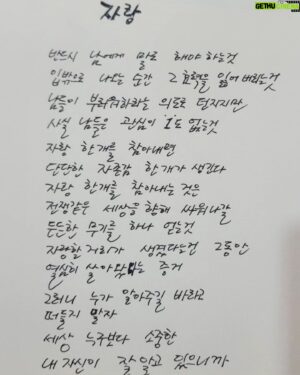 GETHU
자랑
반드시 남에게 말로 해야 하는것
입밖으로 나오는 순간 그 효력을 잃어 버리는것
남들이 부러워하라는 의도로 던지지만
사실 남들은 관심이 '1'도 없는것
자랑 한개를 참아내면
단단한 자존감 한개가 생긴다
자랑 한개를 참아내는 것은
전쟁같은 세상을 향해 싸워나갈
든든한 무기를 하나 얻는것
자랑할 거리가 생겼다는건 그동안
열심히 살아왔다는 증거
그러니 누가 알아주길 바라고
떠들지 말자
세상 누구보다 소중한
내 자신이 잘 알고 있으니까